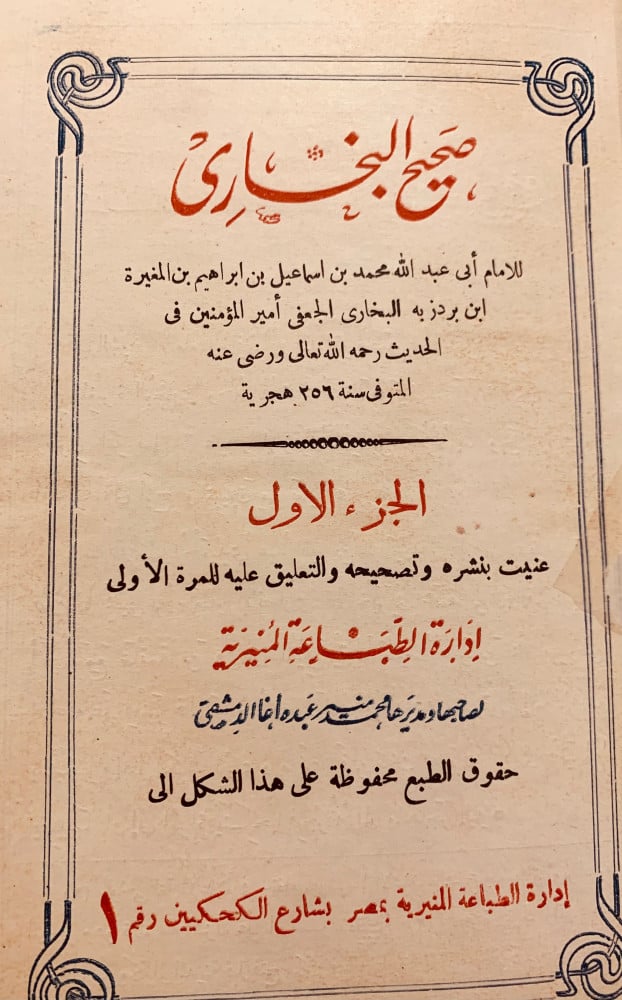 صَحِيح البُخَارِى
للامام أبى عبد الله محمد بن اسماعيل بن ابراهيم بن المغيرة
ابن بردزبه البخارى الجعفى أمير المؤمنين فى
الحديث رحمه الله تعالى ورضى عنه
المتوفى سنة ٢٥٦ هجرية
الجزء الاول
عنيت بنشره وتصحيحه والتعليق عليه للمرة الأولى
إدَارَة الطِّبَاعَةِ المُنِيرَية
لصاحبها ومديرها محمد منير عبده أغا الدمشقى
حقوق الطبع محفوظة على هذا الشكل الى
إدارة الطباعة المنيرية بمصر بشارع الكحكيين رقم ١